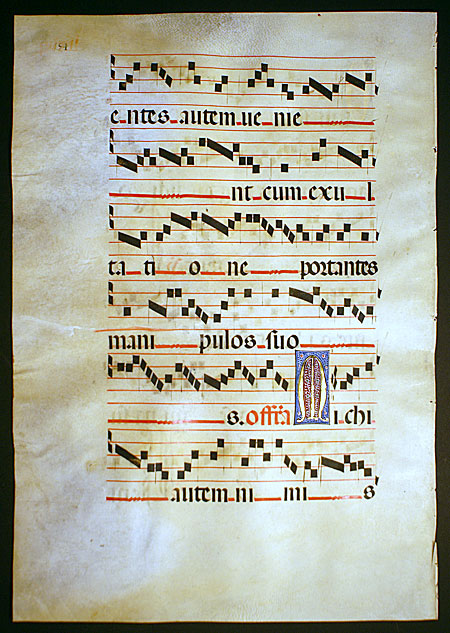 e ntes autem ue nie
nt cum exu l
ta ti o ne portantes
mani pulos suo
s. offia M i chi
autem ni mi s